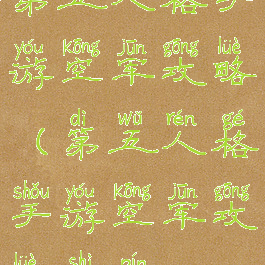 第五人格手
yóu kōng jūn gōng lüè
游空军攻略
dì wǔ rén gé
(第五人格
shǒu yóu kōng jūn gōng
手游空军攻
lüè shì pín